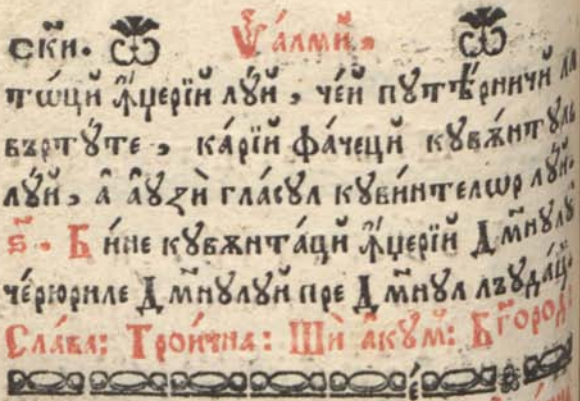 скїи. Ѱалмй,
тѡци а҆҆́ѱерїй лꙋ́й, че́й пꙋте́рничй ла
въртꙋ́те, ка́рїй фа́чецй кꙋвѫнтꙋль
лꙋ́й, а҆ аꙋзѝ гла́сꙋл кꙋви́нтелѡр лꙋ́й.
ѕ҃. Би́не кꙋвѫнта́цй ꙟ҆́џерїй Дм҃нꙋлꙋ́
че́рюриле Дм҃нꙋлꙋй пре Дм҃нꙋл лъꙋда́ц
Сла́ва: Трои́чна: Шѝ а҆кꙋм: Бг҃ород